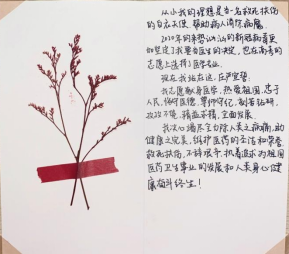 从小我的理想是当一名救死扶伤
的白衣天使，帮助病人消除病魔。
2020年的来势汹汹的新冠病毒更
加坚定了我要当医生的决定，也在高考的
志愿上选择了医学专业。
现在我站在这，庄严宣誓：
我志愿献身医学，热爱祖国，忠于
人民，恪守医德，尊师守纪，刻苦钻研，
孜孜不倦，精益求精，全面发展。
我决心竭尽全力除人类之病痛，助
健康之完美，维护医药的圣洁和荣誉，
救死扶伤，不辞艰辛，执着追求，为祖国
医药卫生事业的发展和人类身心健
康奋斗终生！